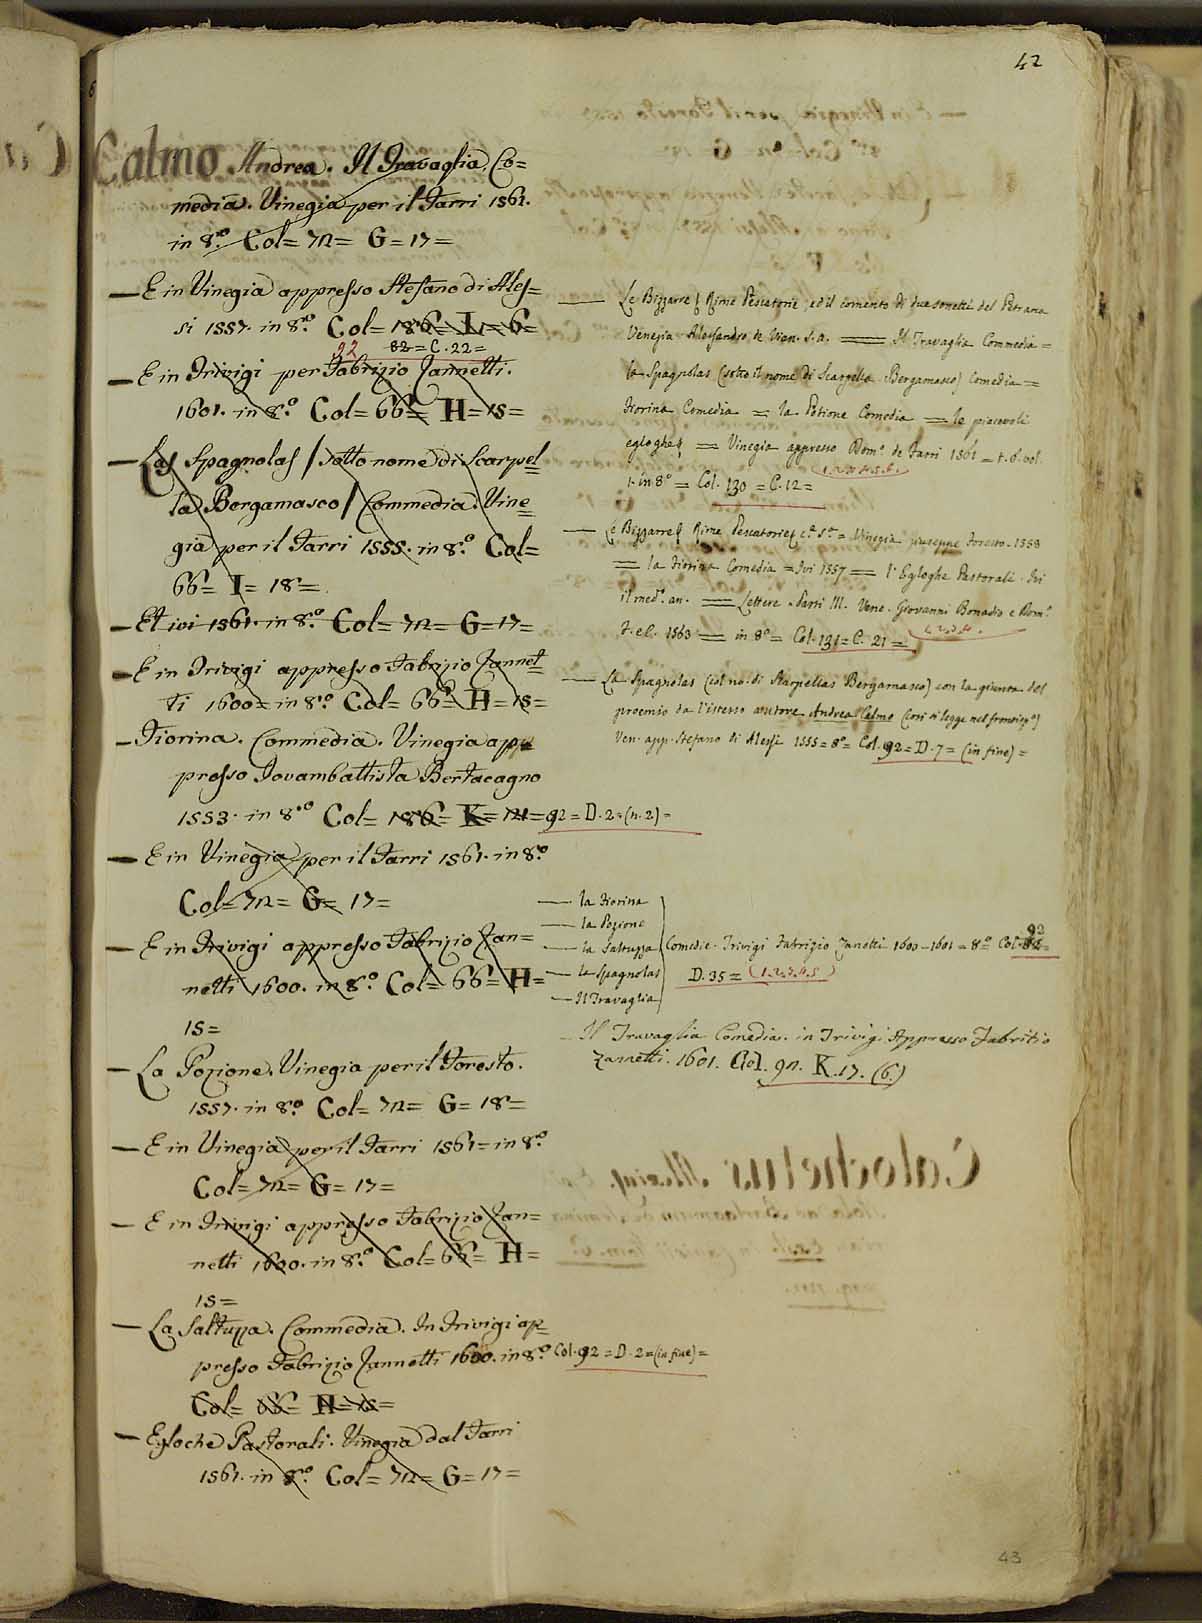 42
Calmo Andrea. Il Travaglia, Co=
media. Vinegia per il Farri 1561.
in 8.º Col= 72= G= 17=
— E in Vinegia appresso Stefano di Ales=
si 1557. in 8.º Col= 186= L= 6=
92 82= C. 22=
— E in Trivigi per Fabrizio Zannetti.
1601. in 8.º Col= 66= H= 15=
— Las Spagnolas / sotto nome di Scarpel=
la Bergamasco / Commedia. Vine=
gia per il Farri 1555. in 8.º Col=
66= I= 18=
— Et ivi 1561. in 8.º Col= 72= G= 17=
— E in Trivigi appresso Fabrizio Zannet=
ti 1600= in 8.º Col= 66= H= 15=
— Fiorina. Commedia. Vinegia app
presso Iovambattista Bertacagno
1553. in 8.º Col= 186= K= 121= 92= D. 2= (n. 2)=
— E in Vinegia per il Farri 1561. in 8.º
Col= 72= G= 17=
— E in Trivigi appresso Fabrizio Zan=
netti 1600. in 8.º Col= 66= H=
15=
— La Pozione. Vinegia per il Foresto.
1557. in 8.º Col= 72= G= 18=
— E in Vinegia per il Farri 1561= in 8.º
Col= 72= G= 17=
— E in Trivigi appresso Fabrizio Zan=
netti 1600. in 8.º Col= 66= H=
15=
— La Saltuzza. Commedia. In Trivigi ap=
presso Fabrizio Zannetti 1600. in 8.º Col. 92= D. 2= (in fine)=
Col= 66= H= 15=
— Egloche Pastorali. Vinegia dal Farri
1561. in 8.º Col= 72= G= 17=
— Le Bizzarre Rime Pescatorie, ed il comento di due sonetti del Petrarca
Venezia Alessandro de Vian. s. a. = Il Travaglia Commedia =
la Spagnolas (sotto il nome di Scarpella Bergamasco) Comedia =
Fiorina Comedia = la Potione Comedia = le piacevoli
egloghe = Vinegia appresso Dom.º de Farri 1561 = t. 6. vol.
1. in 8º = Col. 130 = C. 12 =
1. 2. 3. 4. 5. 6.
— Le Bizzarre Rime Pescatorie = Vinegia giuseppe Foresto. 1558
= la Fiorina Comedia = Ivi 1557 = l'Egloghe Pastorali. Ivi
il med.º an. = Lettere. Parti III. Vene. Giovanni Bonadio e Dom.º
F. e C. 1563 = in 8º = Col. 131 = C. 21 =
1. 2. 3. 4.
— La Spagnolas (col no: di Scarpellas Bergamasco) con la giunta del
proemio da l'istesso autore Andrea Calmo (così si legge nel frontisp.º)
Ven. app. Stefano di Alessi 1555 = 8º = Col. 92 = D. 7 = (in fine) =
— la Fiorina
— la Pozione
— la Saltuzza Comedie. Trivigi Fabrizio Zanetti 1600 - 1601 = 8º Col. 92 =
— la Spagnolas D. 35 = (1. 2. 3. 4. 5)
— Il Travaglia
Il Travaglia Comedia. in Trivigi Appresso Fabritio
Zanetti. 1601. Col. 92. K. 17. (6.)
43